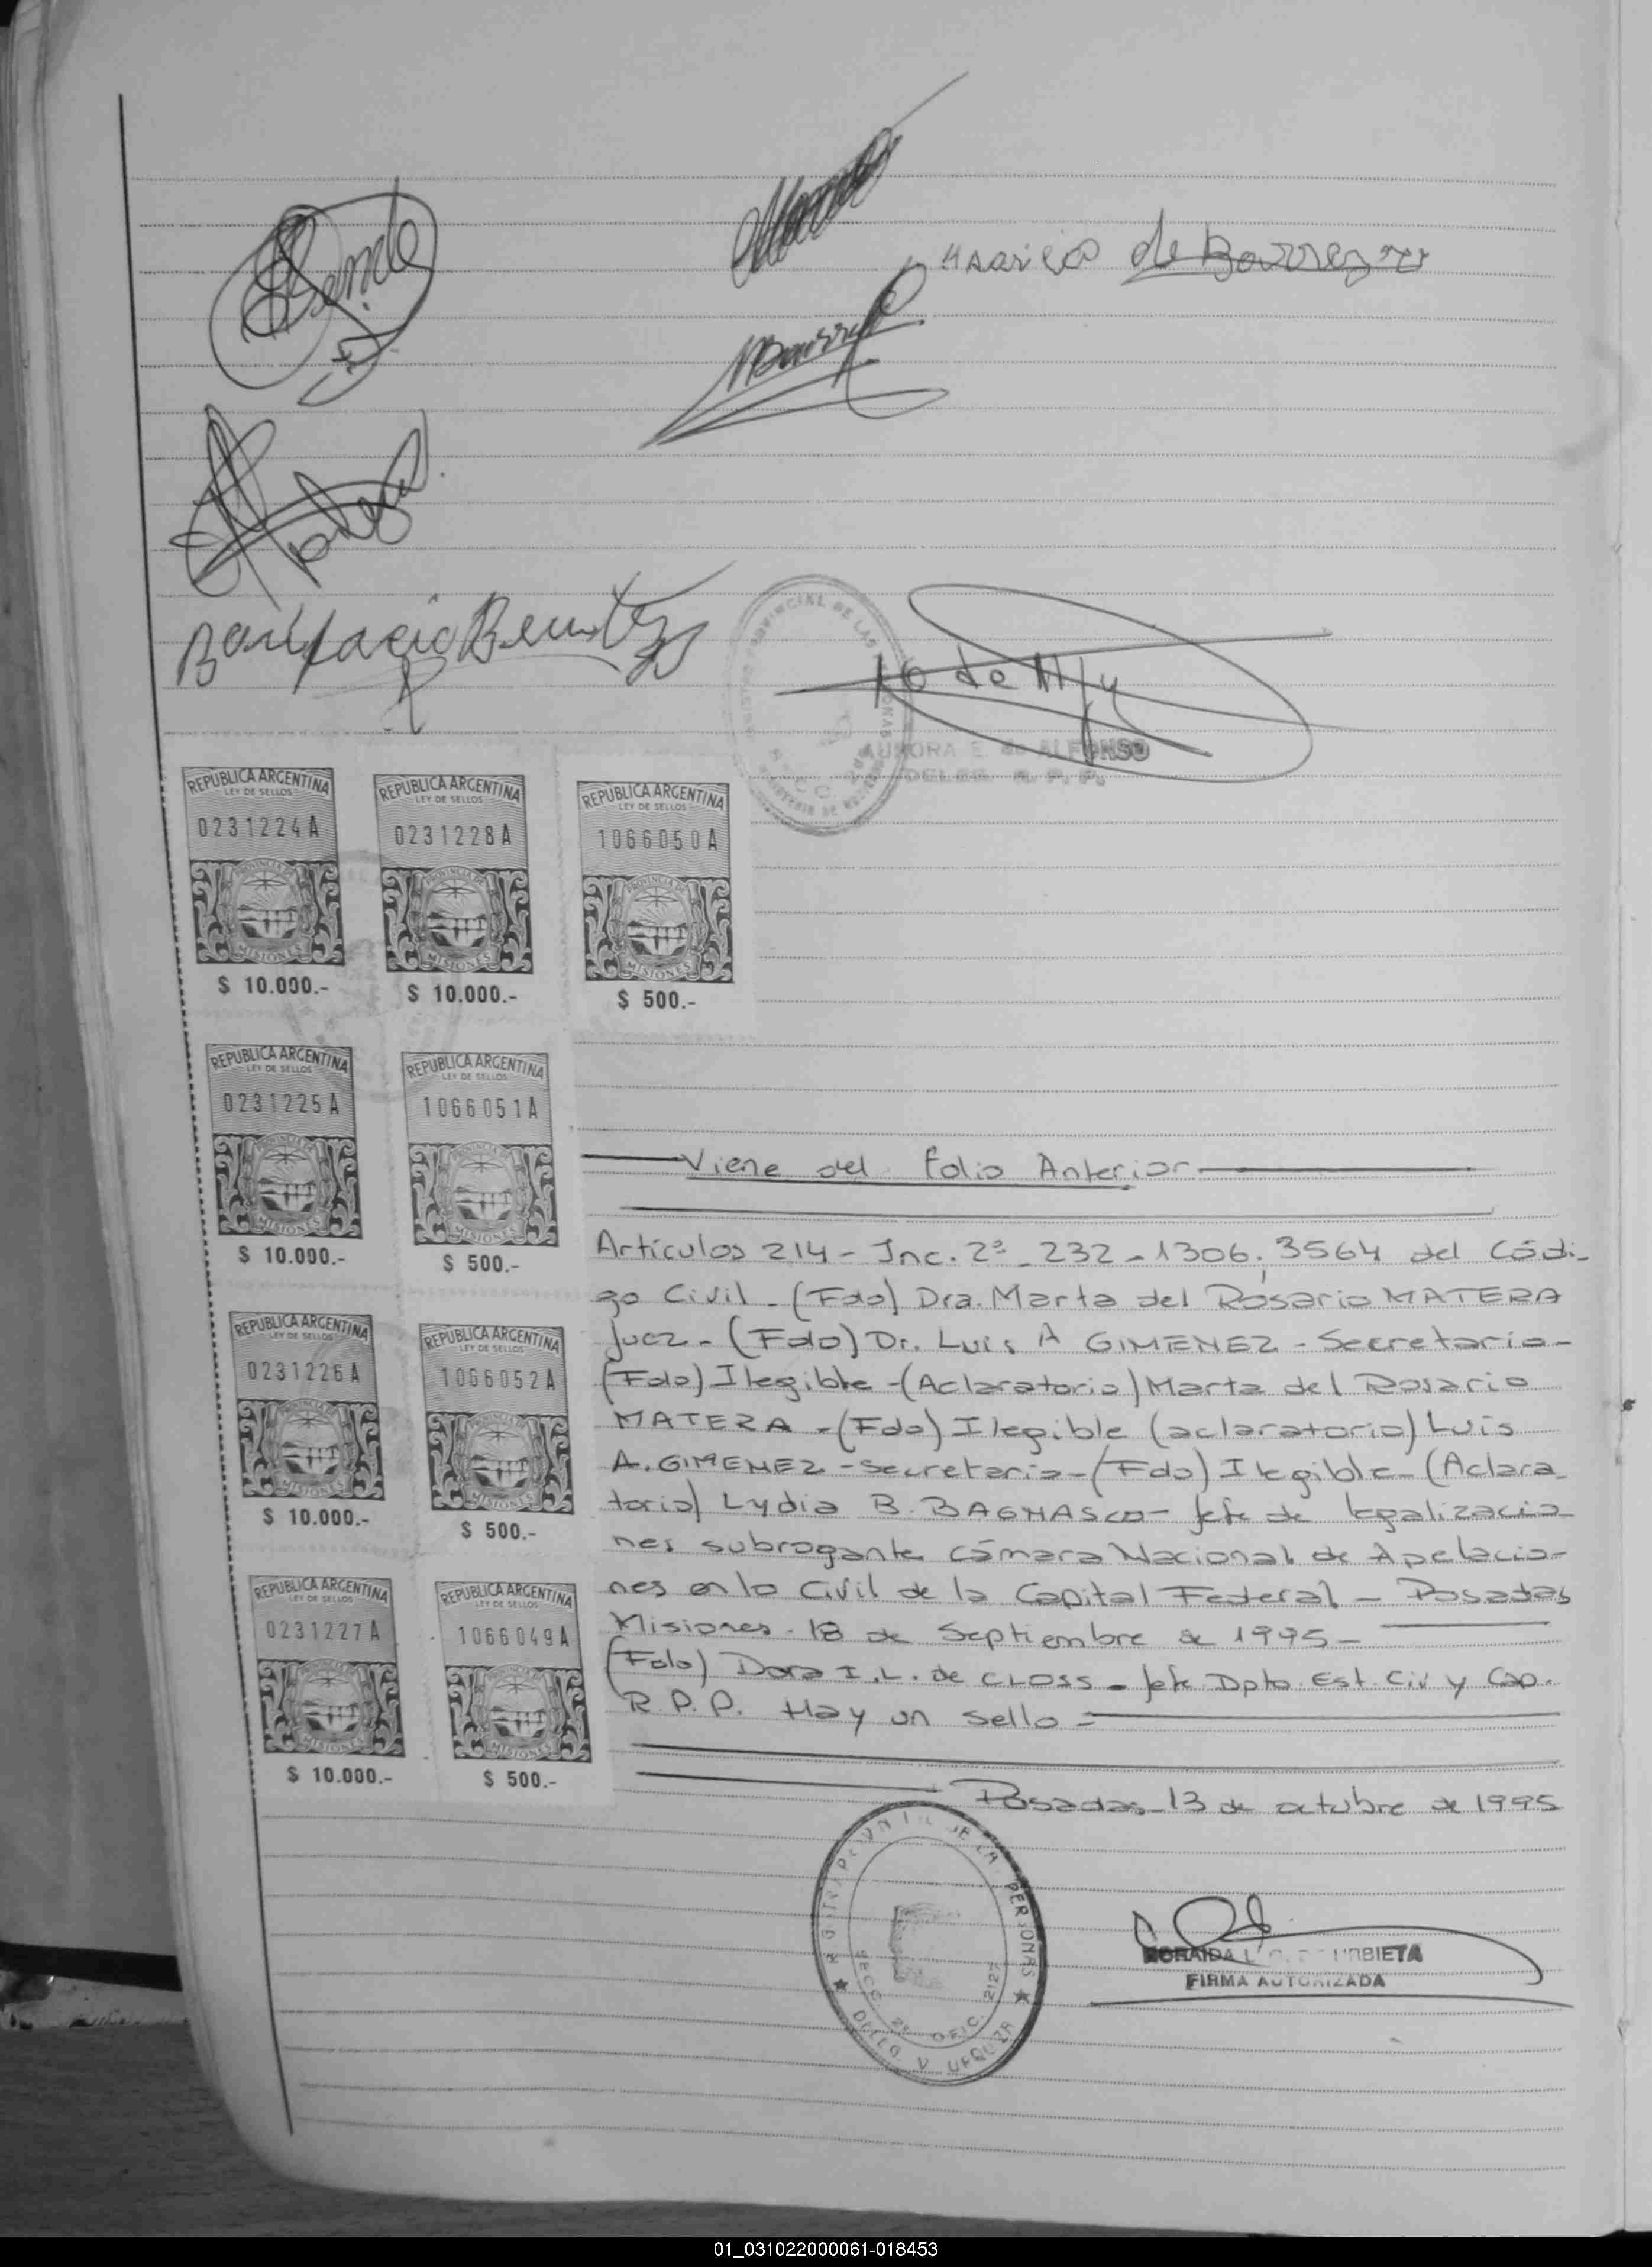 de Barrezo
Bonifacio Benitez
AURORA E de ALFONSO
DELEG. R. P. P.
REPUBLICA ARGENTINA
LEY DE SELLOS
0231224A
PROVINCIA DE
MISIONES
$ 10.000.-
REPUBLICA ARGENTINA
LEY DE SELLOS
0231228A
PROVINCIA DE
MISIONES
$ 10.000.-
REPUBLICA ARGENTINA
LEY DE SELLOS
1066050A
PROVINCIA DE
MISIONES
$ 500.-
REPUBLICA ARGENTINA
LEY DE SELLOS
0231225A
PROVINCIA DE
MISIONES
$ 10.000.-
REPUBLICA ARGENTINA
LEY DE SELLOS
1066051A
PROVINCIA DE
MISIONES
$ 500.-
REPUBLICA ARGENTINA
LEY DE SELLOS
0231226A
PROVINCIA DE
MISIONES
$ 10.000.-
REPUBLICA ARGENTINA
LEY DE SELLOS
1066052A
PROVINCIA DE
MISIONES
$ 500.-
REPUBLICA ARGENTINA
LEY DE SELLOS
0231227A
PROVINCIA DE
MISIONES
$ 10.000.-
REPUBLICA ARGENTINA
LEY DE SELLOS
1066049A
PROVINCIA DE
MISIONES
$ 500.-
Viene del folio Anterior
Artículos 214 - Inc. 2º - 232 - 1306, 3564 del Códi-
go Civil - (Fdo) Dra. Marta del Rosario MATERA
Juez - (Fdo) Dr. Luis A GIMENEZ - Secretario -
(Fdo) Ilegible - (Aclaratoria) Marta del Rosario
MATERA - (Fdo) Ilegible (aclaratoria) Luis
A. GIMENEZ - Secretario - (Fdo) Ilegible - (Aclara-
toria) Lydia B. BAGNASCO - Jefe de legalizacio-
nes subrogante cámara Nacional de Apelacio-
nes en lo Civil de la Capital Federal - Posadas
Misiones - 18 de Septiembre de 1995 -
(Fdo) Dora I.L. de CLOSS - Jefe Dpto. Est. Civ y Cap.
R.P.P. Hay un sello -
Posadas - 13 de octubre de 1995
SECC. 2ª OFIC. 2127
URBIETA
FIRMA AUTORIZADA
01_031022000061-018453